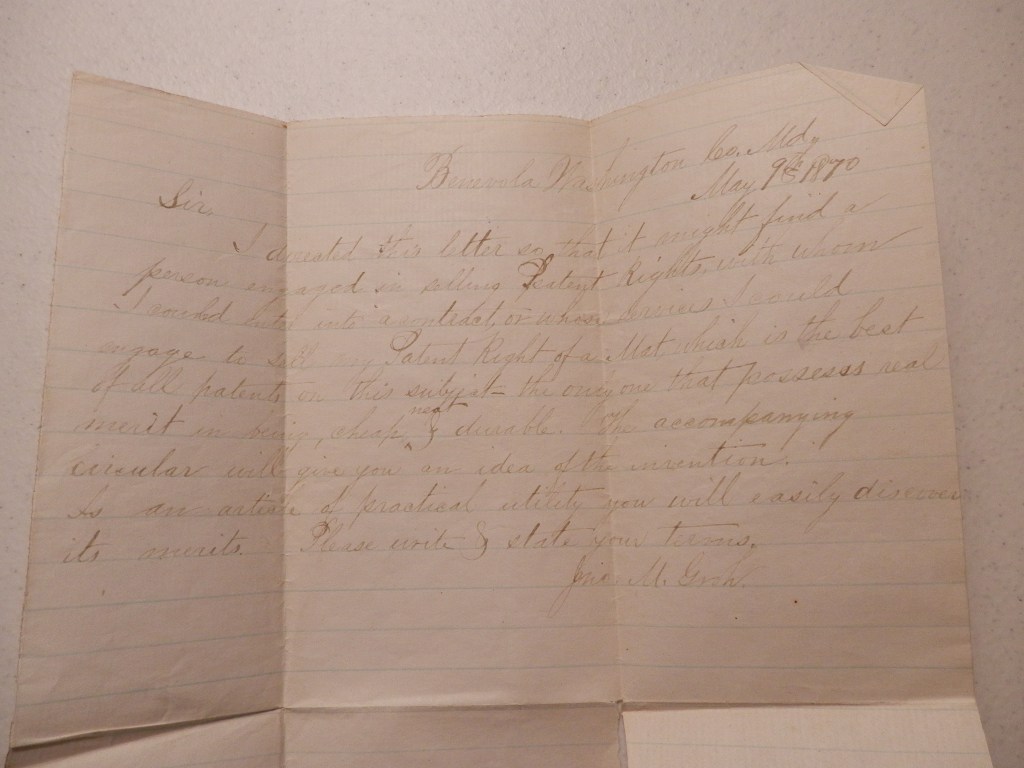 Benevola Washington Co. Md.
May 9th 1870
Sir,
I directed this letter so that it might find a
person engaged in selling Patent Rights, with whom
I could enter into a contract, or whose services I could
engage to sell my Patent Right of a Mat which is the best
of all patents on this subject the only one that possesses real
merit in being, cheap neat & durable. The accompanying
circular will give you an idea of the invention.
As an article of practical utility you will easily discover
its merits. Please write & state your terms.
Jno. M. Groh.